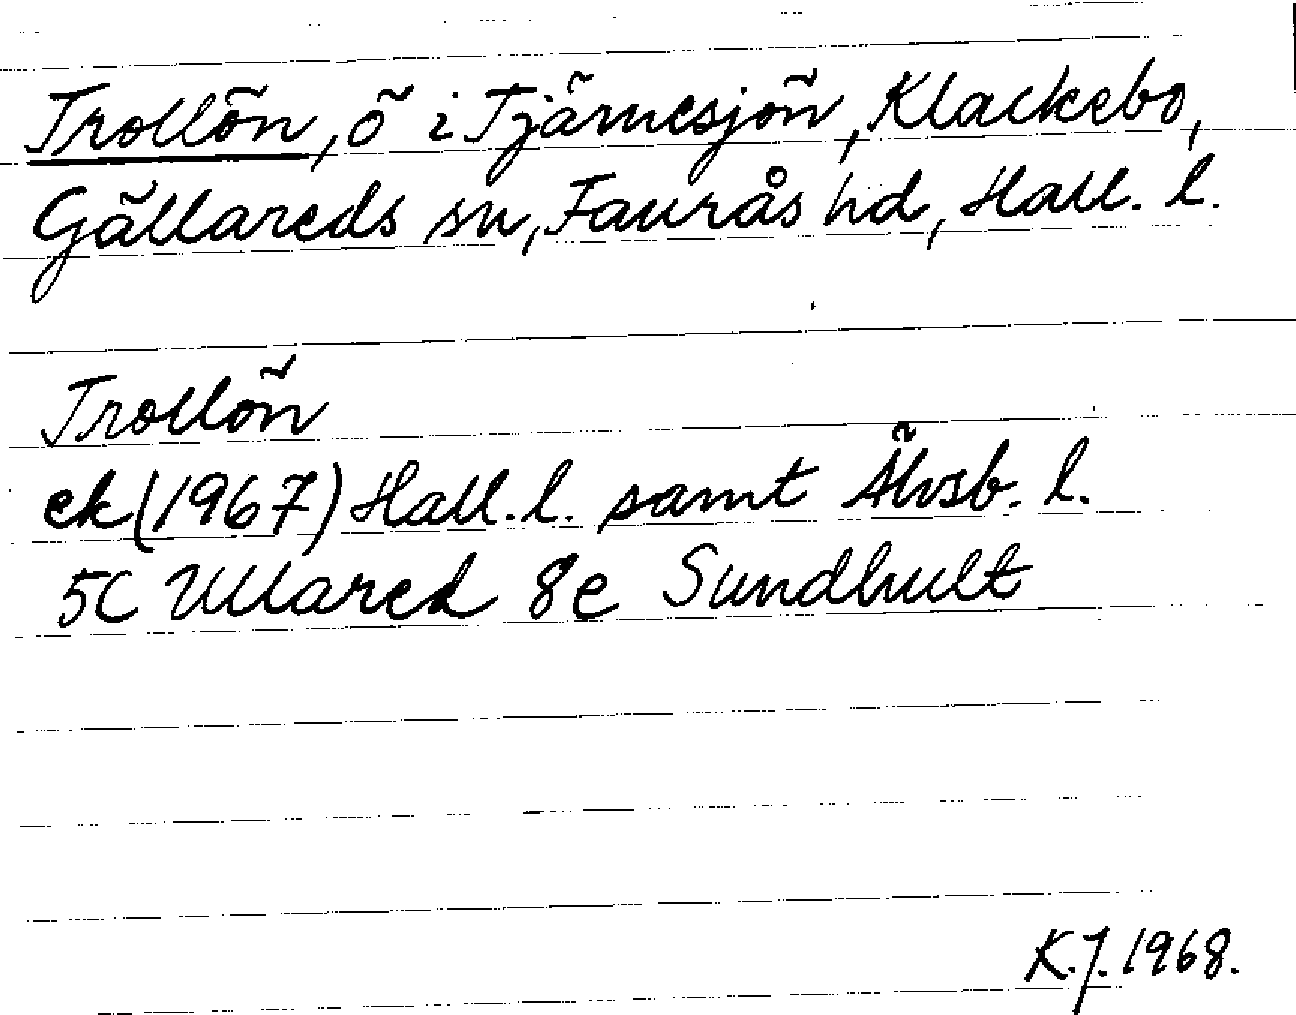 Trollön, ö i Tjärnesjön, Klackebo,
Gällareds sn, Faurås hd, Hall. l.
Trollön
ek (1967) Hall. l. samt Älvsb. l.
5C Ullared 8e Sundhult
K.J. 1968.